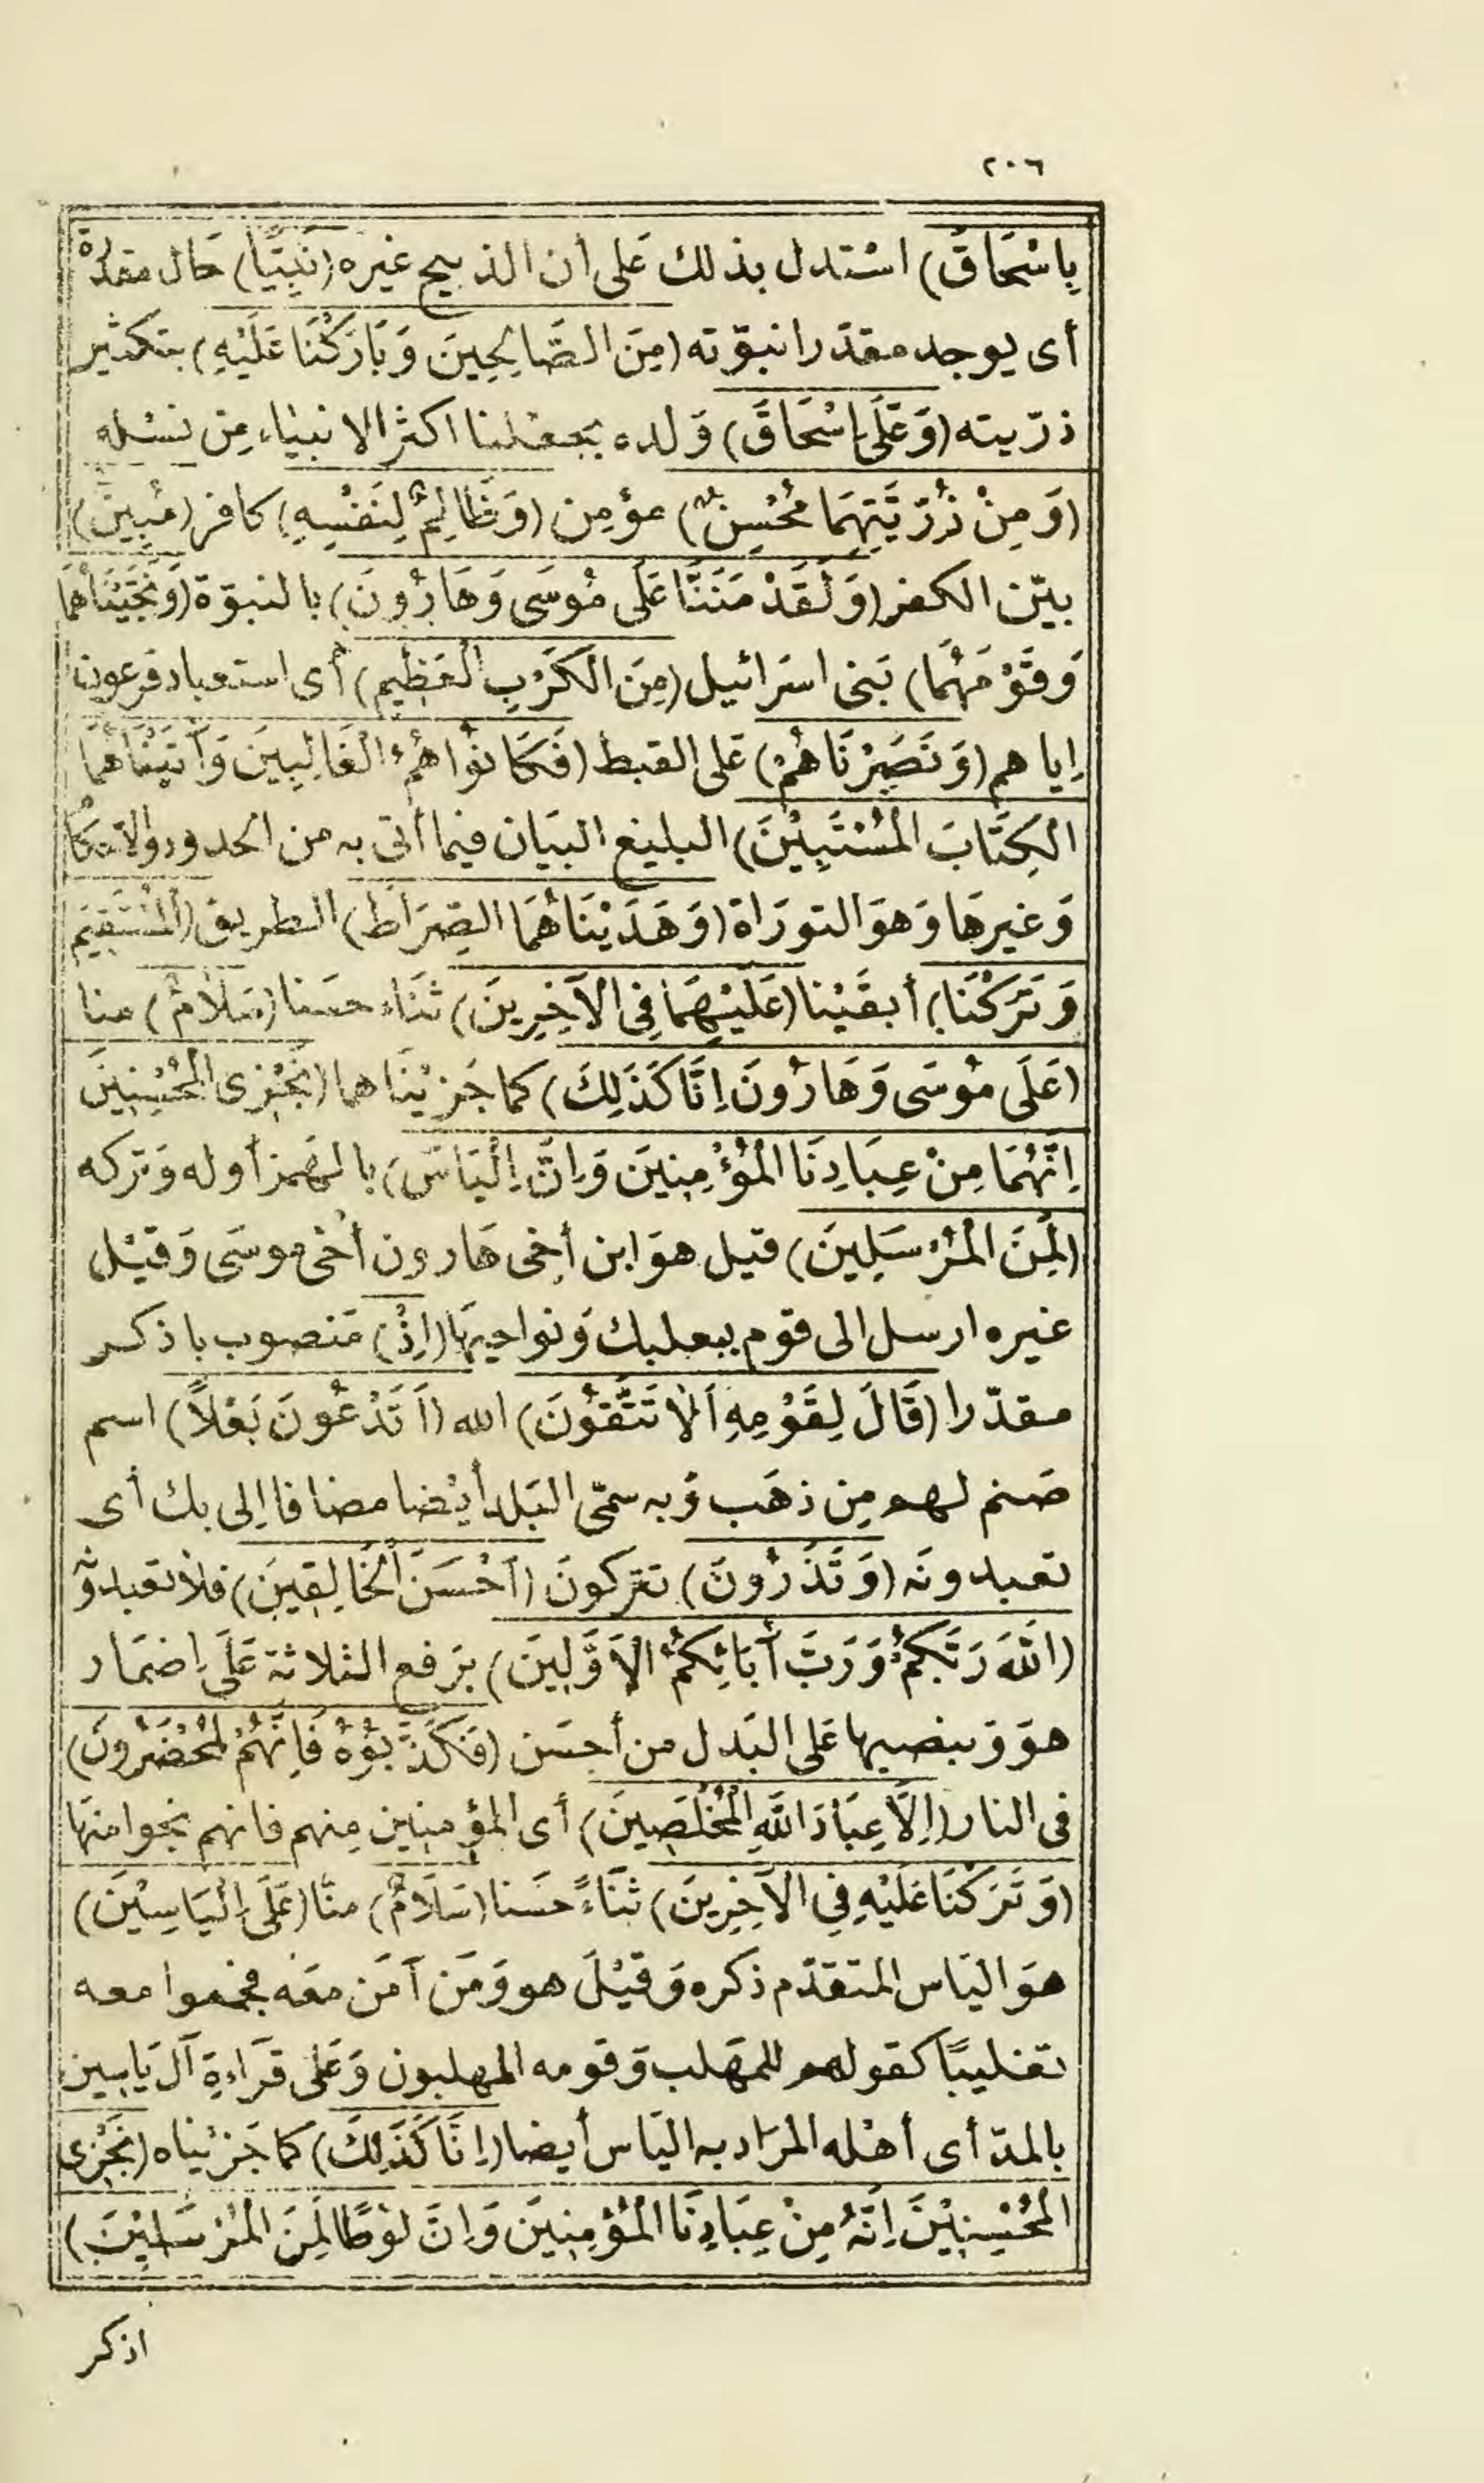 ٢٠٦
بِاِسْحَاقَ) اسْتدل بذلك عَلى أن الذبيح غيره (نَبِيًّا) حَال مقدّرة
أى يوجد مقدّرا نبوّته (مِنَ الصَّالِحِينَ وَبَارَكْنَا عَلَيْهِ) بتكثير
ذرّيته (وَعَلَى اِسْحَاقَ) وَلده بجعلنا اكثر الانبياء مِن نسْله
(وَمِنْ ذُرِّيَّتِهِمَا مُحْسِنٌ) مؤمِن (وَظَالِمٌ لِنَفْسِهِ) كافر (مُبِينٌ)
بيّن الكفر (وَلَقَدْ مَنَنَّا عَلَى مُوسَى وَهَارُونَ) بالنبوّة (وَنَجَّيْنَاهُمَا
وَقَوْمَهُمَا) بَنى اسرَائيل (مِنَ الْكَرْبِ الْعَظِيمِ) أى استعباد فرعون
إياهم (وَنَصَرْنَاهُمْ) عَلى القبط (فَكَانُوا هُمُ الْغَالِبِينَ وَآتَيْنَاهُمَا
الْكِتَابَ الْمُسْتَبِينَ) البليغ البيَان فيما أتى به من الحدود والاحكام
وَغيرهَا وَهوَ التورَاة (وَهَدَيْنَاهُمَا الصِّرَاطَ) الطريق (الْمُسْتَقِيمَ
وَتَرَكْنَا) أبقَيْنا (عَلَيْهِمَا فِى الْآخِرِينَ) ثنَاء حسَنا (سَلَامٌ) منا
(عَلَى مُوسَى وَهَارُونَ اِنَّا كَذَلِكَ) كما جَزيْنَاهما (نَجْزِى الْمُحْسِنِينَ
اِنَّهُمَا مِنْ عِبَادِنَا الْمُؤْمِنِينَ وَاِنَّ اِلْيَاسَ) بالهَمز أوله وَتركه
(لَمِنَ الْمُرْسَلِينَ) قيل هوَ ابن أخى هَارون أخى موسَى وَقيْل
غيره ارسل الى قوم ببعلبك وَنواحيهَا (اِذْ) مَنصوب باذكر
مقدّرا (قَالَ لِقَوْمِهِ اَلَا تَتَّقُونَ) الله (اَتَدْعُونَ بَعْلاً) اسم
صَنم لهم مِن ذهَب وَبه سمّى البَلد أيْضا مضافا إلى بك أى
تعبدونَه (وَتَذَرُونَ) تتركونَ (اَحْسَنَ الْخَالِقِينَ) فلا تعبدونه
(اَللَّهُ رَبُّكُمْ وَرَبُّ آبَائِكُمُ الْاَوَّلِينَ) برَفع الثلاثة عَلَى اِضمَار
هوَ وَبنصبها عَلى البَدل من أحسَن (فَكَذَّبُوهُ فَاِنَّهُمْ لَمُحْضَرُونَ)
فى النار (اِلَّا عِبَادَ اللَّهِ الْمُخْلَصِينَ) أى المؤمنين مِنهم فانهم نجوا منهَا
(وَتَرَكْنَا عَلَيْهِ فِى الْآخِرِينَ) ثنَاءً حَسَنا (سَلَامٌ) منّا (عَلَى اِلْيَاسِينَ)
هوَ اليَاس المتقدّم ذكره وَقيْلَ هو وَمَن آمَن معَه فجمعوا معه
تغليبًا كقولهم للمهَلب وَقومه المهلبون وَعَلى قرَاءةِ آل يَاسِين
بالمدّ أى أهْله المرَاد به اليَاس أيضا (اِنَّا كَذَلِكَ) كما جَزيْناه (نَجْزِى
الْمُحْسِنِيْنَ اِنَّهُ مِنْ عِبَادِنَا الْمُؤْمِنِينَ وَاِنَّ لُوطًا لَمِنَ الْمُرْسَلِيْنَ)
اذكر